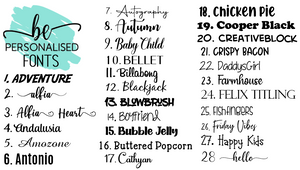 be
PERSONALISED
FONTS
1. ADVENTURE
2. alfia
3. Alfia Heart
4. Andalusia
5. Amozone
6. Antonio
7. Autography
8. Autumn
9. Baby Child
10. BELLET
11. Billabong
12. Blackjack
13. BLOWBRUSH
14. Boyfriend
15. Bubble Jelly
16. Buttered Popcorn
17. Cathyan
18. Chicken Pie
19. Cooper Black
20. CREATIVEBLOCK
21. CRISPY BACON
22. DaddysGirl
23. Farmhouse
24. FELIX TITLING
25. FISHFINGERS
26. Friday Vibes
27. Happy Kids
28 hello